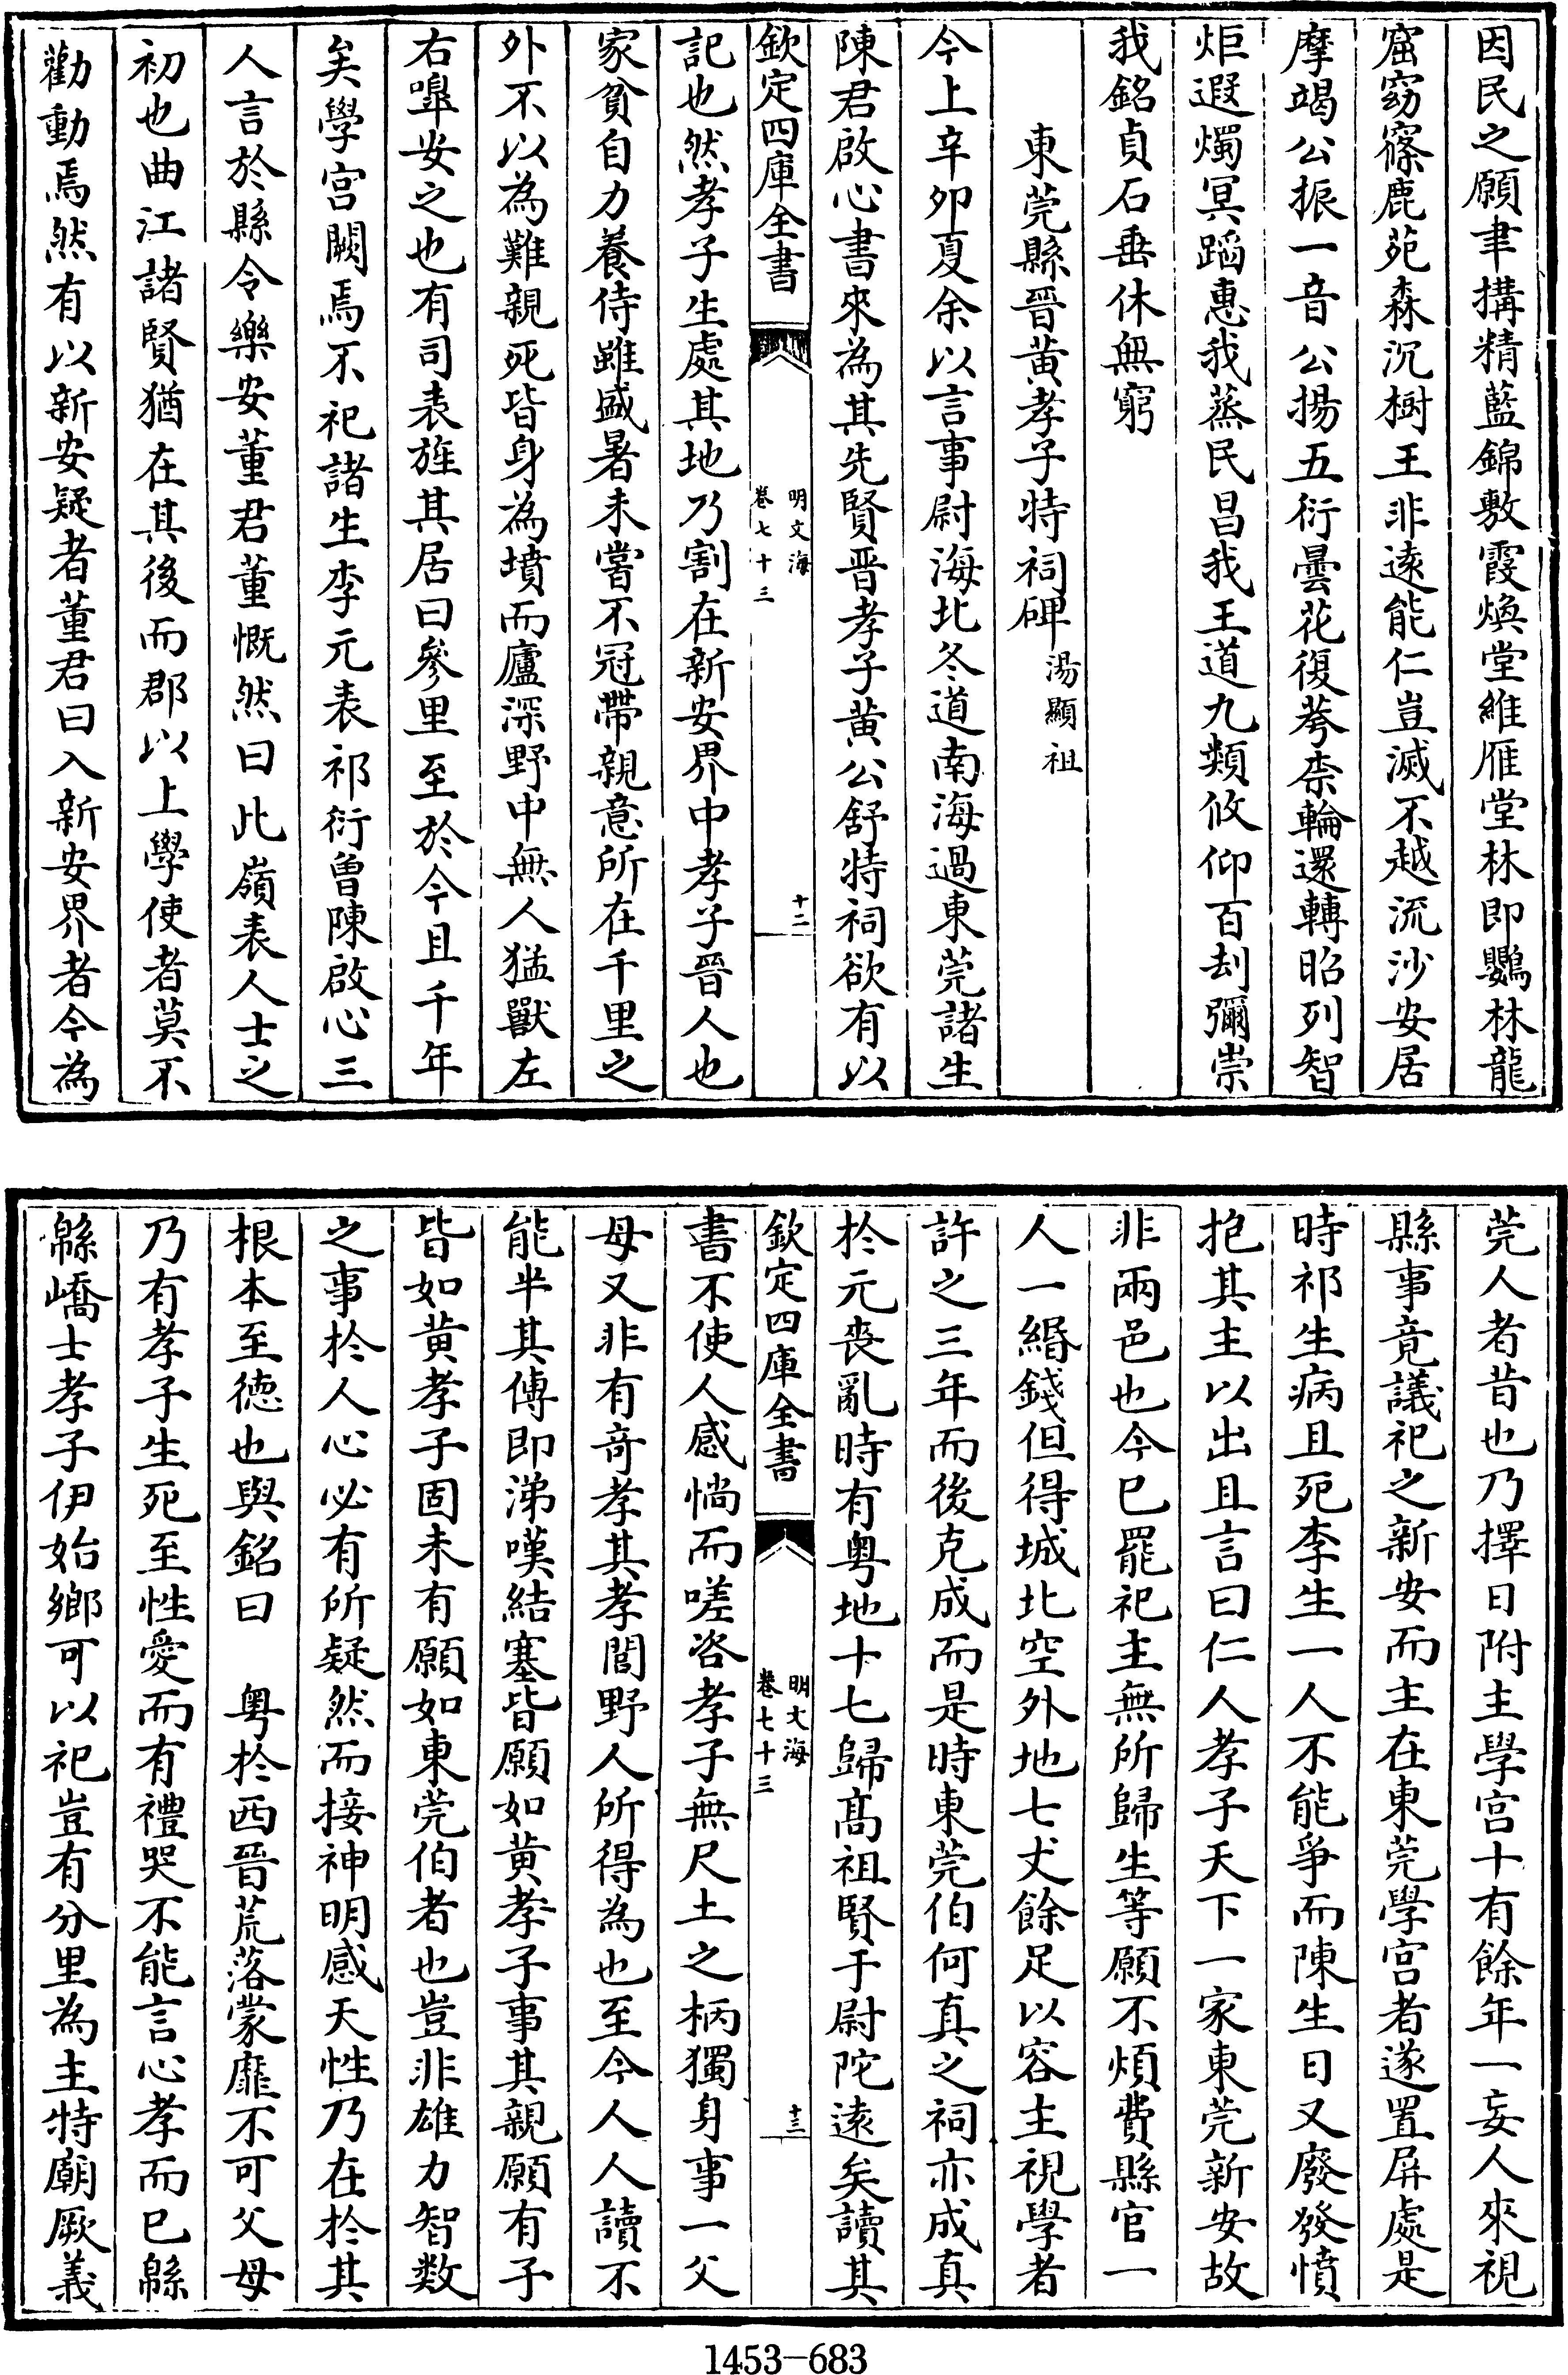 因民之願聿搆精藍錦敷霞煥堂維雁堂林即鸚林龍
窟窈窱鹿苑森沉樹王非逺能仁豈滅不越流沙安居
摩竭公振一音公揚五衍曇花復蕚柰輪還轉昭列智
炬遐燭冥蹈惠我蒸民昌我王道九𩔖攸仰百刦彌崇
我銘貞石垂休無窮
東莞縣晉黄孝子特祠碑 湯顯祖
今上辛卯夏余以言事尉海北冬道南海過東莞諸生
陳君啟心書來為其先賢晉孝子黄公舒特祠欲有以
欽定四庫全書 明文海 卷七十三 十二
記也然孝子生處其地乃割在新安界中孝子晉人也
家貧自力養侍雖盛暑未嘗不冠帶親意所在千里之
外不以為難親死皆身為墳而廬深野中無人猛獸左
右嘷安之也有司表旌其居曰參里至於今且千年
矣學宫闕焉不祀諸生李元表祁衍曾陳啟心三
人言於縣令樂安董君董慨然曰此嶺表人士之
初也曲江諸賢猶在其後而郡以上學使者莫不
勸動焉然有以新安疑者董君曰入新安界者今為
莞人者昔也乃擇日附主學宫十有餘年一妄人來視
縣事竟議祀之新安而主在東莞學宫者遂置屏處是
時祁生病且死李生一人不能爭而陳生日又廢發憤
抱其主以出且言曰仁人孝子天下一家東莞新安故
非兩邑也今已罷祀主無所歸生等願不煩費縣官一
人一緡錢但得城北空外地七丈餘足以容主視學者
許之三年而後克成而是時東莞伯何真之祠亦成真
於元喪亂時有粤地十七歸髙祖賢于尉陀逺矣讀其
欽定四庫全書 明文海 卷七十三 十三
書不使人感惝而嗟咨孝子無尺土之柄獨身事一父
母又非有奇孝其孝閭野人所得為也至今人人讀不
能半其傳即涕嘆結塞皆願如黄孝子事其親願有子
皆如黄孝子固未有願如東莞伯者也豈非雄力智数
之事於人心必有所疑然而接神明感天性乃在於其
根本至德也與銘曰 粤於西晉荒落蒙靡不可父母
乃有孝子生死至性愛而有禮哭不能言心孝而已緜
緜嶠士孝子伊始鄉可以祀豈有分里為主特廟厥義
1453-683